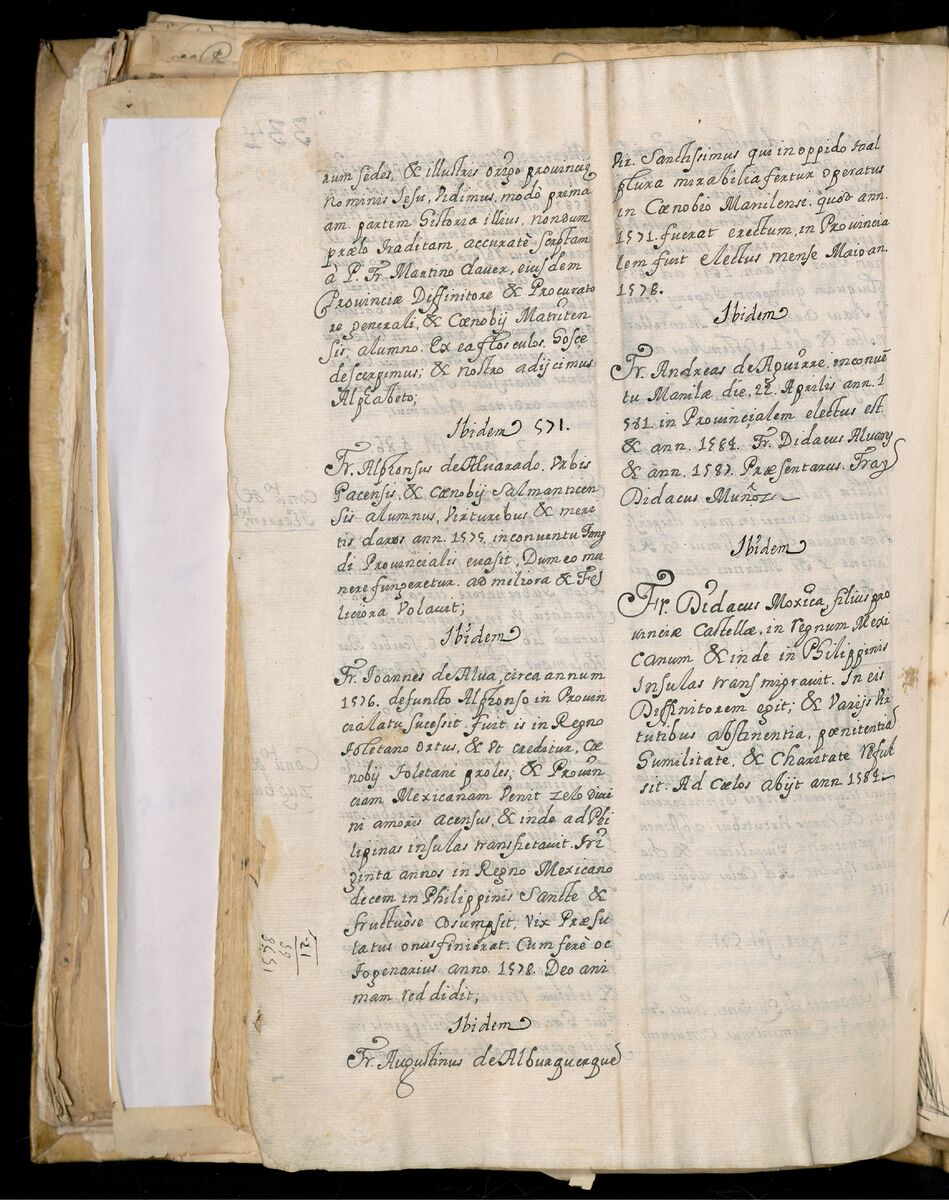 rum sedes, & illustris origo provinciæ
Nominis Jesu, Vidimus, modò prima
am. partem Historia illius, nondum
prælo traditam, accuratè scriptam
à P. Fr. Martino claver, eiusdem
Provinciæ Diffinitore & Procurato
re generali, & Cœnobij Matriten
sis, alumno. Ex ea flosculos. Hosce
descerpimus; & nostro adijcimus
Alphabeto;
Ibidem 571.
Fr. Alphonsus de Alvarado. Vrbis
Pacensis, & Cœnobij Salmanticen
sis alumnus, Virturibus & meri
tis clarus ann. 1575. in conventu
di Provincialis evasit, Dum eo mu
nere fungeretur. ad meliora & Fe
liciora Volavit;
Ibidem
Fr. Ioannes de Alva, circa annum
1576. defuncto Alphonso in Provin
cialatu sucessit. Fuit is in Regno
Toletano Ortus, & Vt creditur, Cœ
nobij Toletani proles; & Provin
ciam Mexicanam Venit zelo Divi
ni amoris acensus, & inde ad Phi
lipinas insulas transfretavit. Tri
ginta annos in Regno Mexicano
decem in Philippinis Sancte &
fructuòse Osumpsit, Vix Præsu
latus onus finierat. Cum ferè oc
togenarius anno. 1578. Deo ani
mam reddidit;
Ibidem
Fr. Augustinus de Alburquerque
Vir. Sanctissimus qui in oppido taal
plura mirabilia fertur Operatus
in Cœnobio Manilensi. quod ann.
1571. fuerat erectum, in Provincia
lem fuit electus mense Maio an.
1578.
Ibidem
Fr. Andreas de Aguirre, in conuē
tu Manilæ die, 22. Aprilis ann. 1
581. in Provincialem electus est.
& ann. 1584. Fr. Didacus Alvarez
& ann. 1587. Præsentarus. Fray
Didacus Muñoz
Ibidem
Fr. Didacus Moxica, filius pro
vinciæ Castellæ, in regnum Mexi
canum & inde in Philippinis
Insulas transmigravit. In eis
Diffinitorem egit; & Varijs Vir
tutibus abstinentia, pœnitentia
Humilitate, & Charitate reful
sit. Ad Cœlos abijt ann 1584.
1578
65